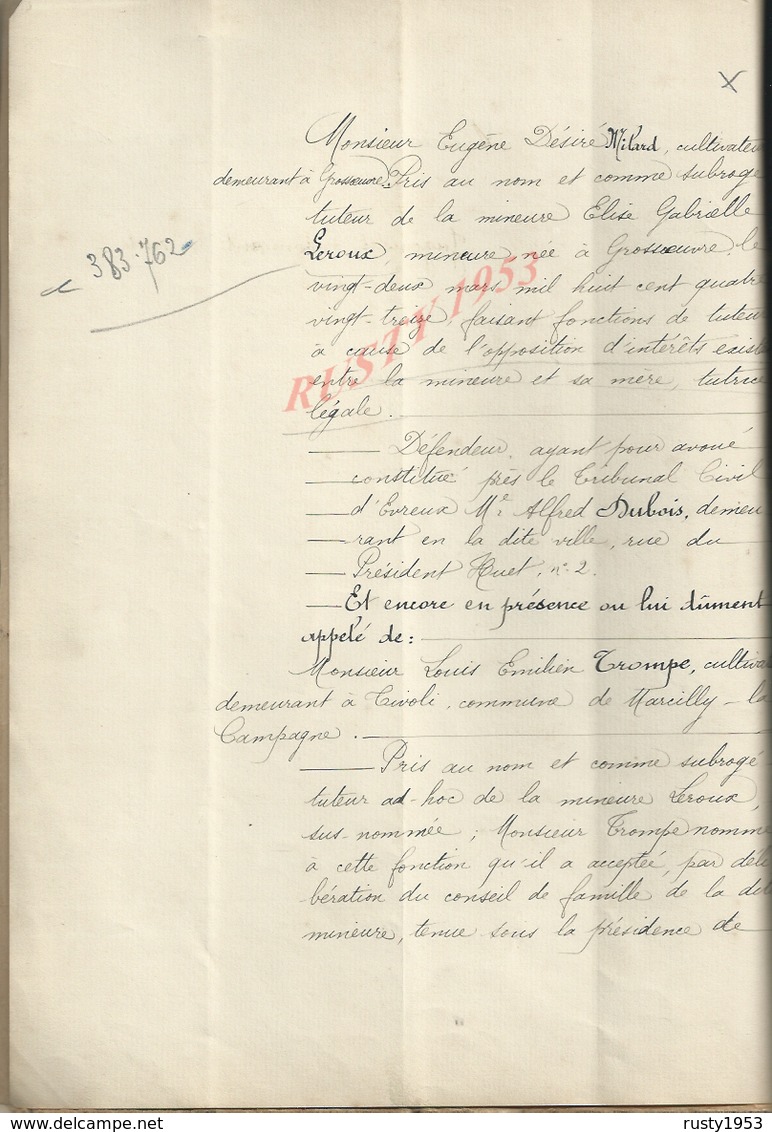 X
Monsieur Eugène Désiré Milard, cultivateu
demeurant à Grossoeuvre. Pris au nom et comme subrogé
tuteur de la mineure Elise Gabrielle
Leroux, mineure née à Grossoeuvre le
383.762
vingt-deux mars mil huit cent quatre
vingt-treize, faisant fonctions de tuteur
à cause de l'opposition d'intérêts exista
entre la mineure et sa mère, tutrice
légale.
RUSTY 1953
Défendeur, ayant pour avoué
constitué près le Tribunal Civil
d'Evreux Me Alfred Dubois, demeu
rant en la dite ville, rue du
Président Huet, n° 2.
Et encore en présence ou lui dûment
appelé de:
Monsieur Louis Emilien Trompe, cultiva
demeurant à Tivoli, commune de Marcilly-la
Campagne.
Pris au nom et comme subrogé
tuteur ad-hoc de la mineure Leroux,
sus-nommée; Monsieur Trompe nommé
à cette fonction qu'il a acceptée, par déli
bération du conseil de famille de la dit
mineure, tenue sous la présidence de
delcampe.net
rusty1953